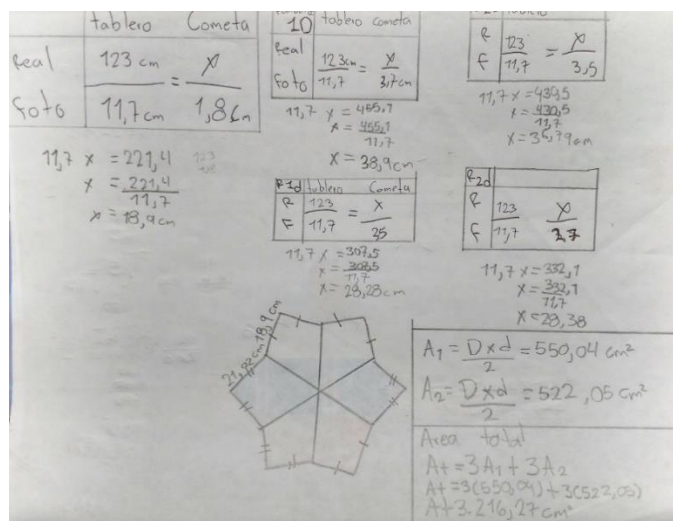 tablero Cometa
Real 123 cm = x
Foto 11,7cm 1,8cm
11,7 x = 221,4
x = 221,4
11,7
x = 18,9cm
10 tablero cometa
Real 123cm = x
Foto 11,7 3,7cm
11,7 x = 455,1
x = 455,1
11,7
x = 38,9cm
R1d tablero Cometa
R 123 = x
F 11,7 25
11,7 x = 307,5
x = 307,5
11,7
x = 28,28cm
R 123 = x
F 11,7 3,5
11,7 x = 430,5
x = 430,5
11,7
x = 36,79cm
R2d
R 123 x
F 11,7 2,7
11,7 x = 332,1
x = 332,1
11,7
x = 28,38
21,92cm 18,9cm
A1 = Dxd = 550,04 cm²
2
A2 = Dxd = 522,05 cm²
2
Area total
At = 3A1 + 3A2
At = 3(550,04) + 3(522,05)
At 3.216,27cm²